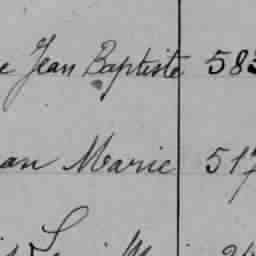 e Jean Baptiste 583
an Marie 517